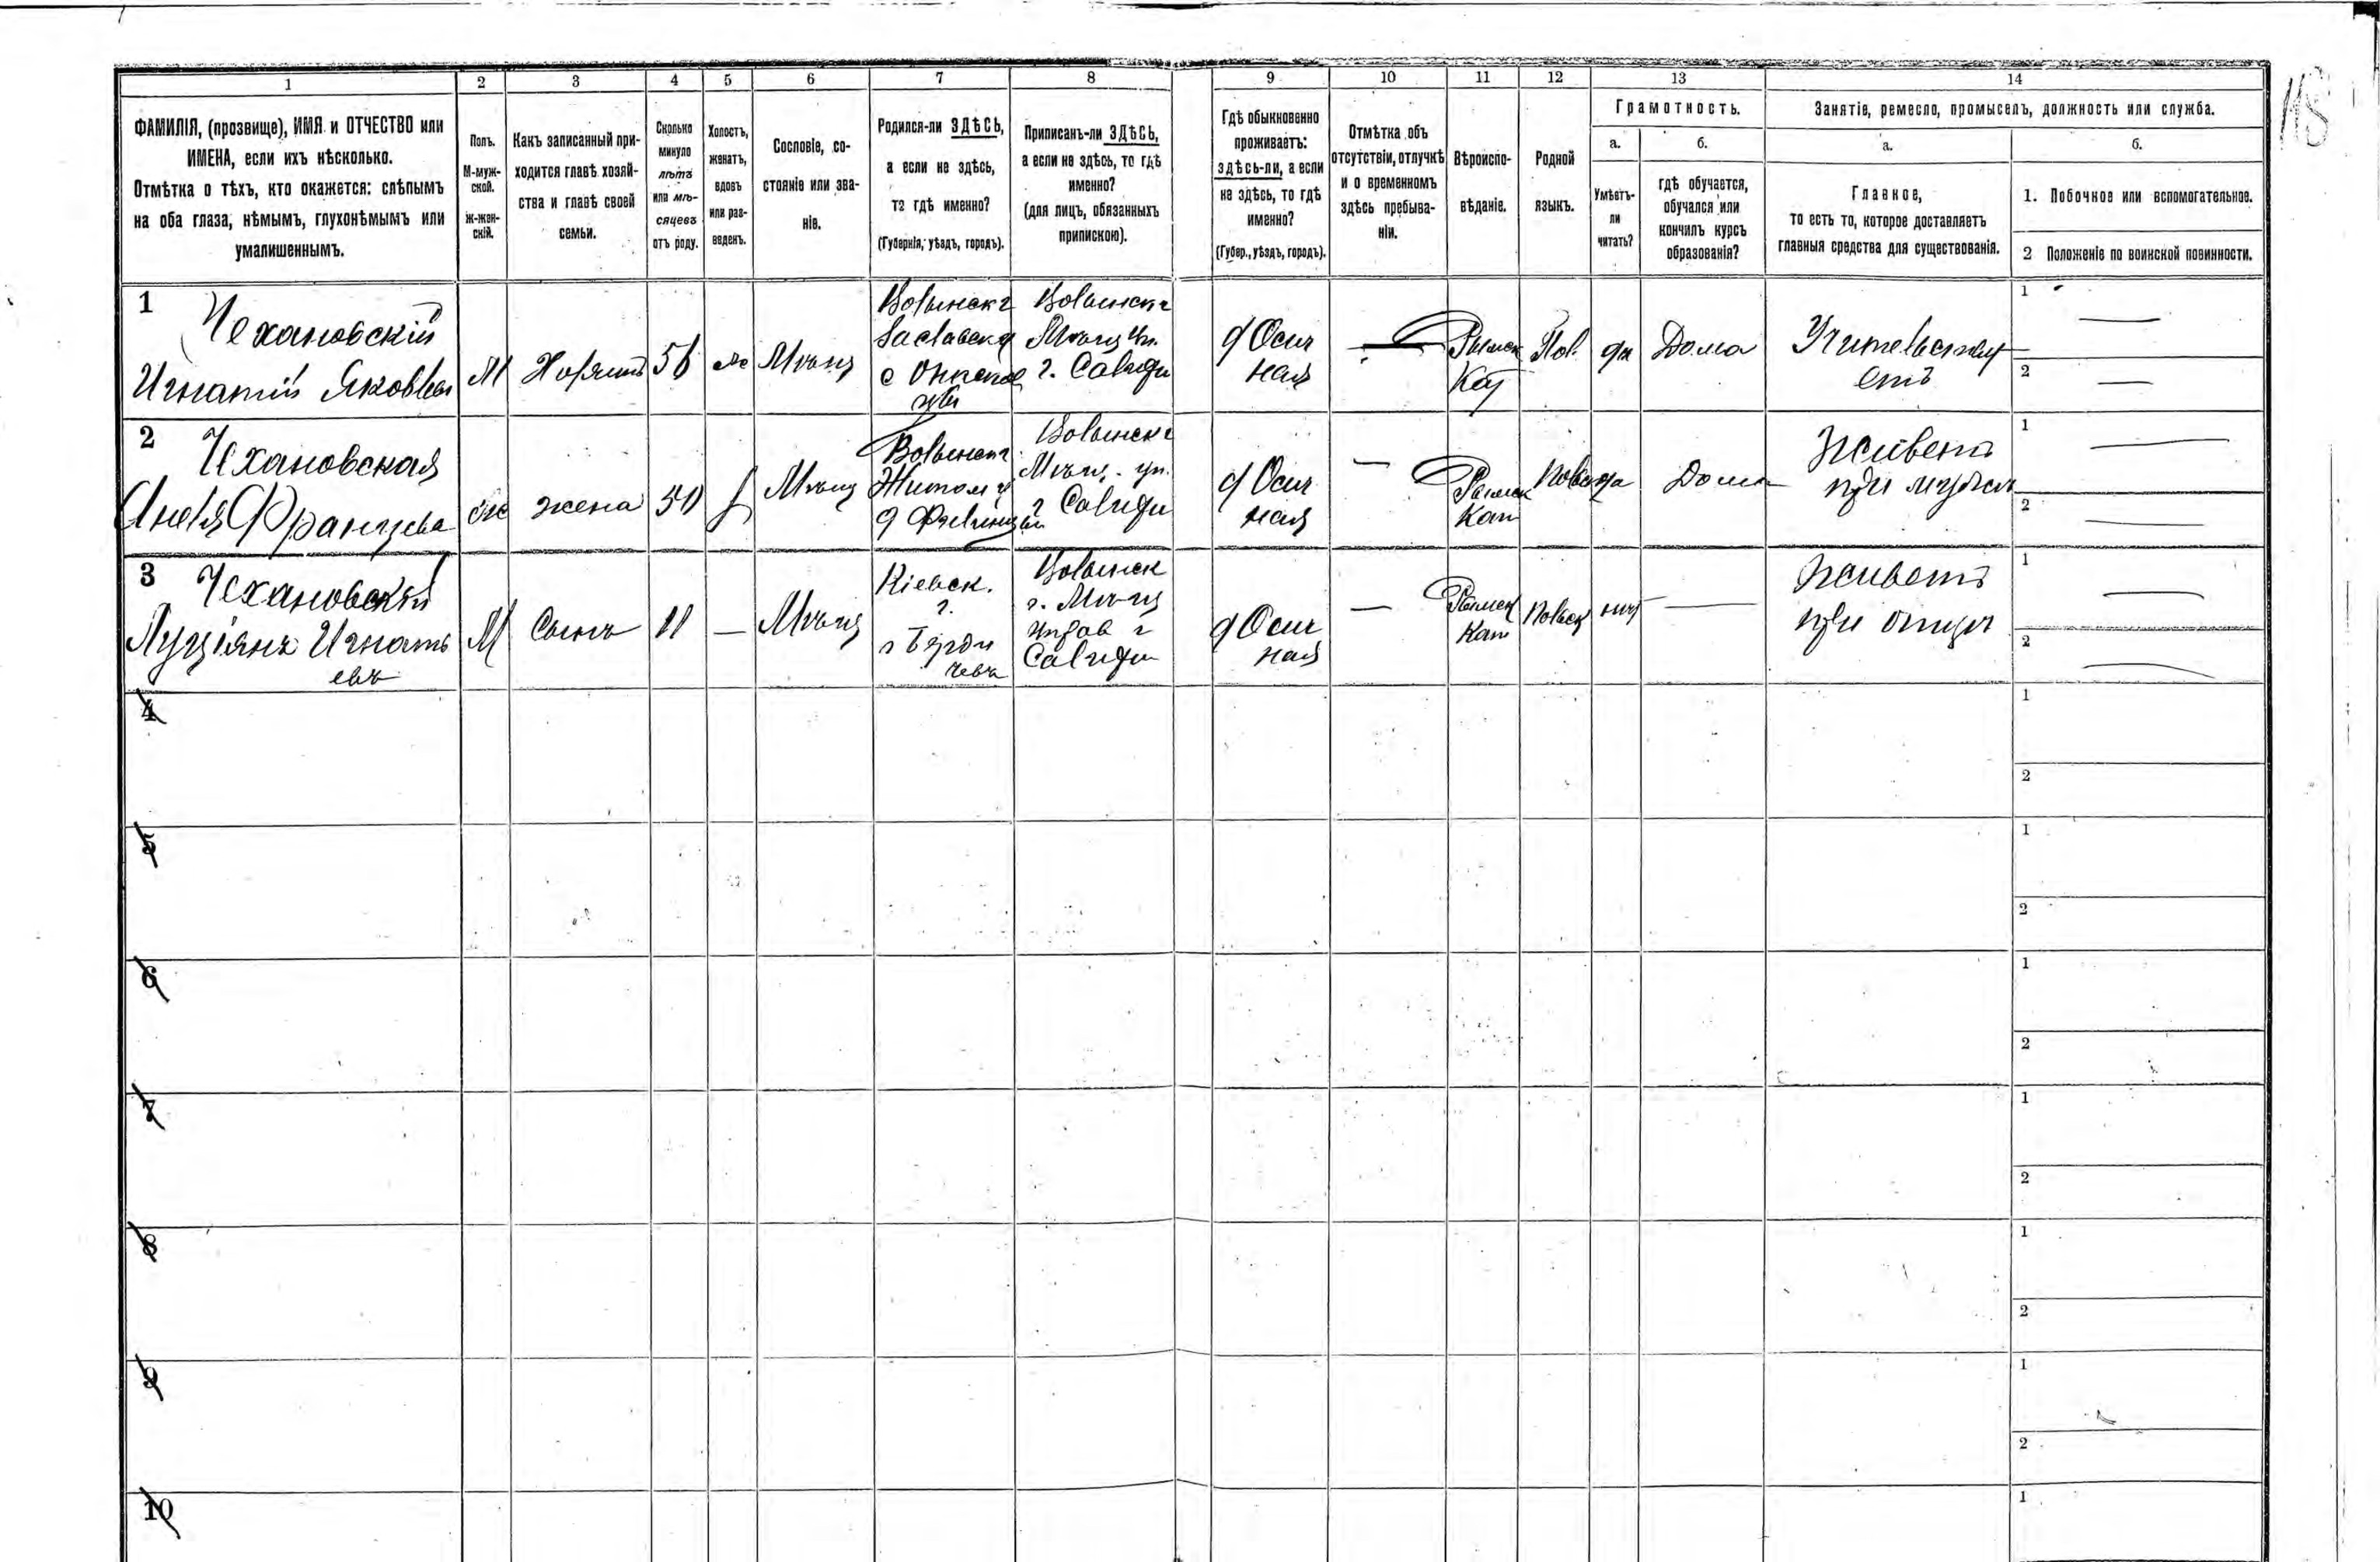 118
1
2
3
4
5
6
7
8
9
10
11
12
13
14
ФАМИЛІЯ, (прозвище), ИМЯ и ОТЧЕСТВО или
ИМЕНА, если ихъ нѣсколько.
Отмѣтка о тѣхъ, кто окажется: слѣпымъ
на оба глаза, нѣмымъ, глухонѣмымъ или
умалишеннымъ.
Полъ.
М-муж-
ской.
Ж-жен-
скій.
Какъ записанный при-
ходится главѣ хозяй-
ства и главѣ своей
семьи.
Сколько
минуло
лѣтъ
или мѣ-
сяцевъ
отъ роду.
Холостъ,
женатъ,
вдовъ
или раз-
веденъ.
Сословіе, со-
стояніе или зва-
ніе.
Родился-ли ЗДѢСЬ,
а если не здѣсь,
то гдѣ именно?
(Губернія, уѣздъ, городъ).
Приписанъ-ли ЗДѢСЬ,
а если не здѣсь, то гдѣ
именно?
(для лицъ, обязанныхъ
припискою).
Гдѣ обыкновенно
проживаетъ:
здѣсь-ли, а если
не здѣсь, то гдѣ
именно?
(Губер., уѣздъ, городъ).
Отмѣтка объ
отсутствіи, отлучкѣ
и о временномъ
здѣсь пребыва-
ніи.
Вѣроиспо-
вѣданіе.
Родной
языкъ.
Грамотность.
а.
Умѣетъ-
ли
читать?
б.
гдѣ обучается,
обучался или
кончилъ курсъ
образованія?
Занятіе, ремесло, промыселъ, должность или служба.
а.
Главное,
то есть то, которое доставляетъ
главныя средства для существованія.
б.
1. Побочное или вспомогательное.
2 Положеніе по воинской повинности.
1
Чехановскій
Игнатій Яковлев
М
56
Мѣщ
Волынск г
Заславск
с
Волынск г
Мѣщ уп.
г.
д Осич
ная
Римск
Кат
Пол.
да
Дома
Учительству
етъ
1
2
2
Чехановская
Анеля Францева
ж
жена
50
Мѣщ
Волынск г
Житом у
д
Волынск г
Мѣщ. уп.
г
д Осич
ная
Римск
Кат
Польск
да
Дома
Живетъ
при мужѣ
1
2
3
Чехановскій
Луціянъ Игнать
евъ
М
Сынъ
11
Мѣщ
Кіевск.
г.
г Берди
чевъ
Волынск
г. Мѣщ
управ г
д Осич
ная
Римск
Кат
Польск
нѣт
Живетъ
при отцѣ
1
2
4
1
2
5
1
2
6
1
2
7
1
2
8
1
2
9
1
2
10
1